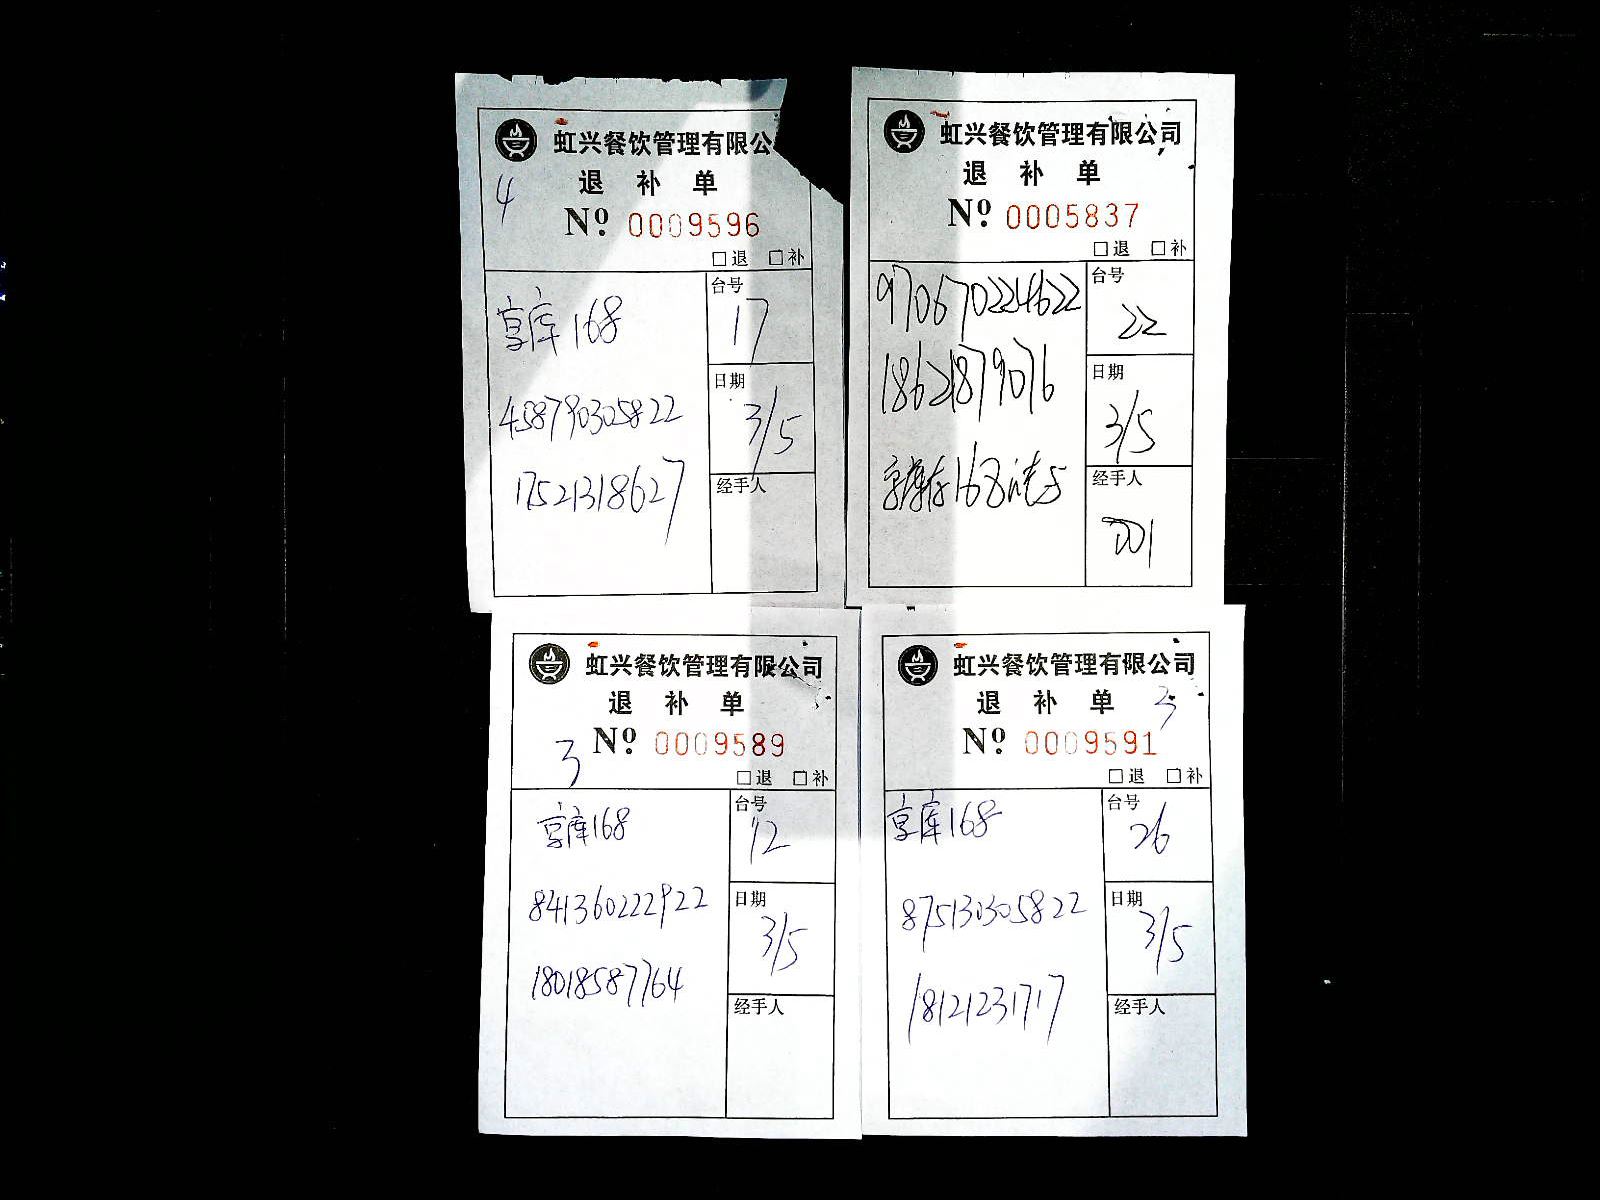 虹兴餐饮管理有限公
退 补 单
4
Nº. 0009596
□退 □补
享库168
458790305822
17521318627
台号
17
日期
3/5
经手人
虹兴餐饮管理有限公司
退 补 单
Nº. 0005837
□退 □补
970670224622
18621879076
168
台号
22
日期
3/5
经手人
001
虹兴餐饮管理有限公司
退 补 单
3
Nº. 0009589
□退 □补
享库168
841360222922
18018587764
台号
12
日期
3/5
经手人
虹兴餐饮管理有限公司
退 补 单
3
Nº. 0009591
□退 □补
享库168
875130305822
18121231717
台号
26
日期
3/5
经手人